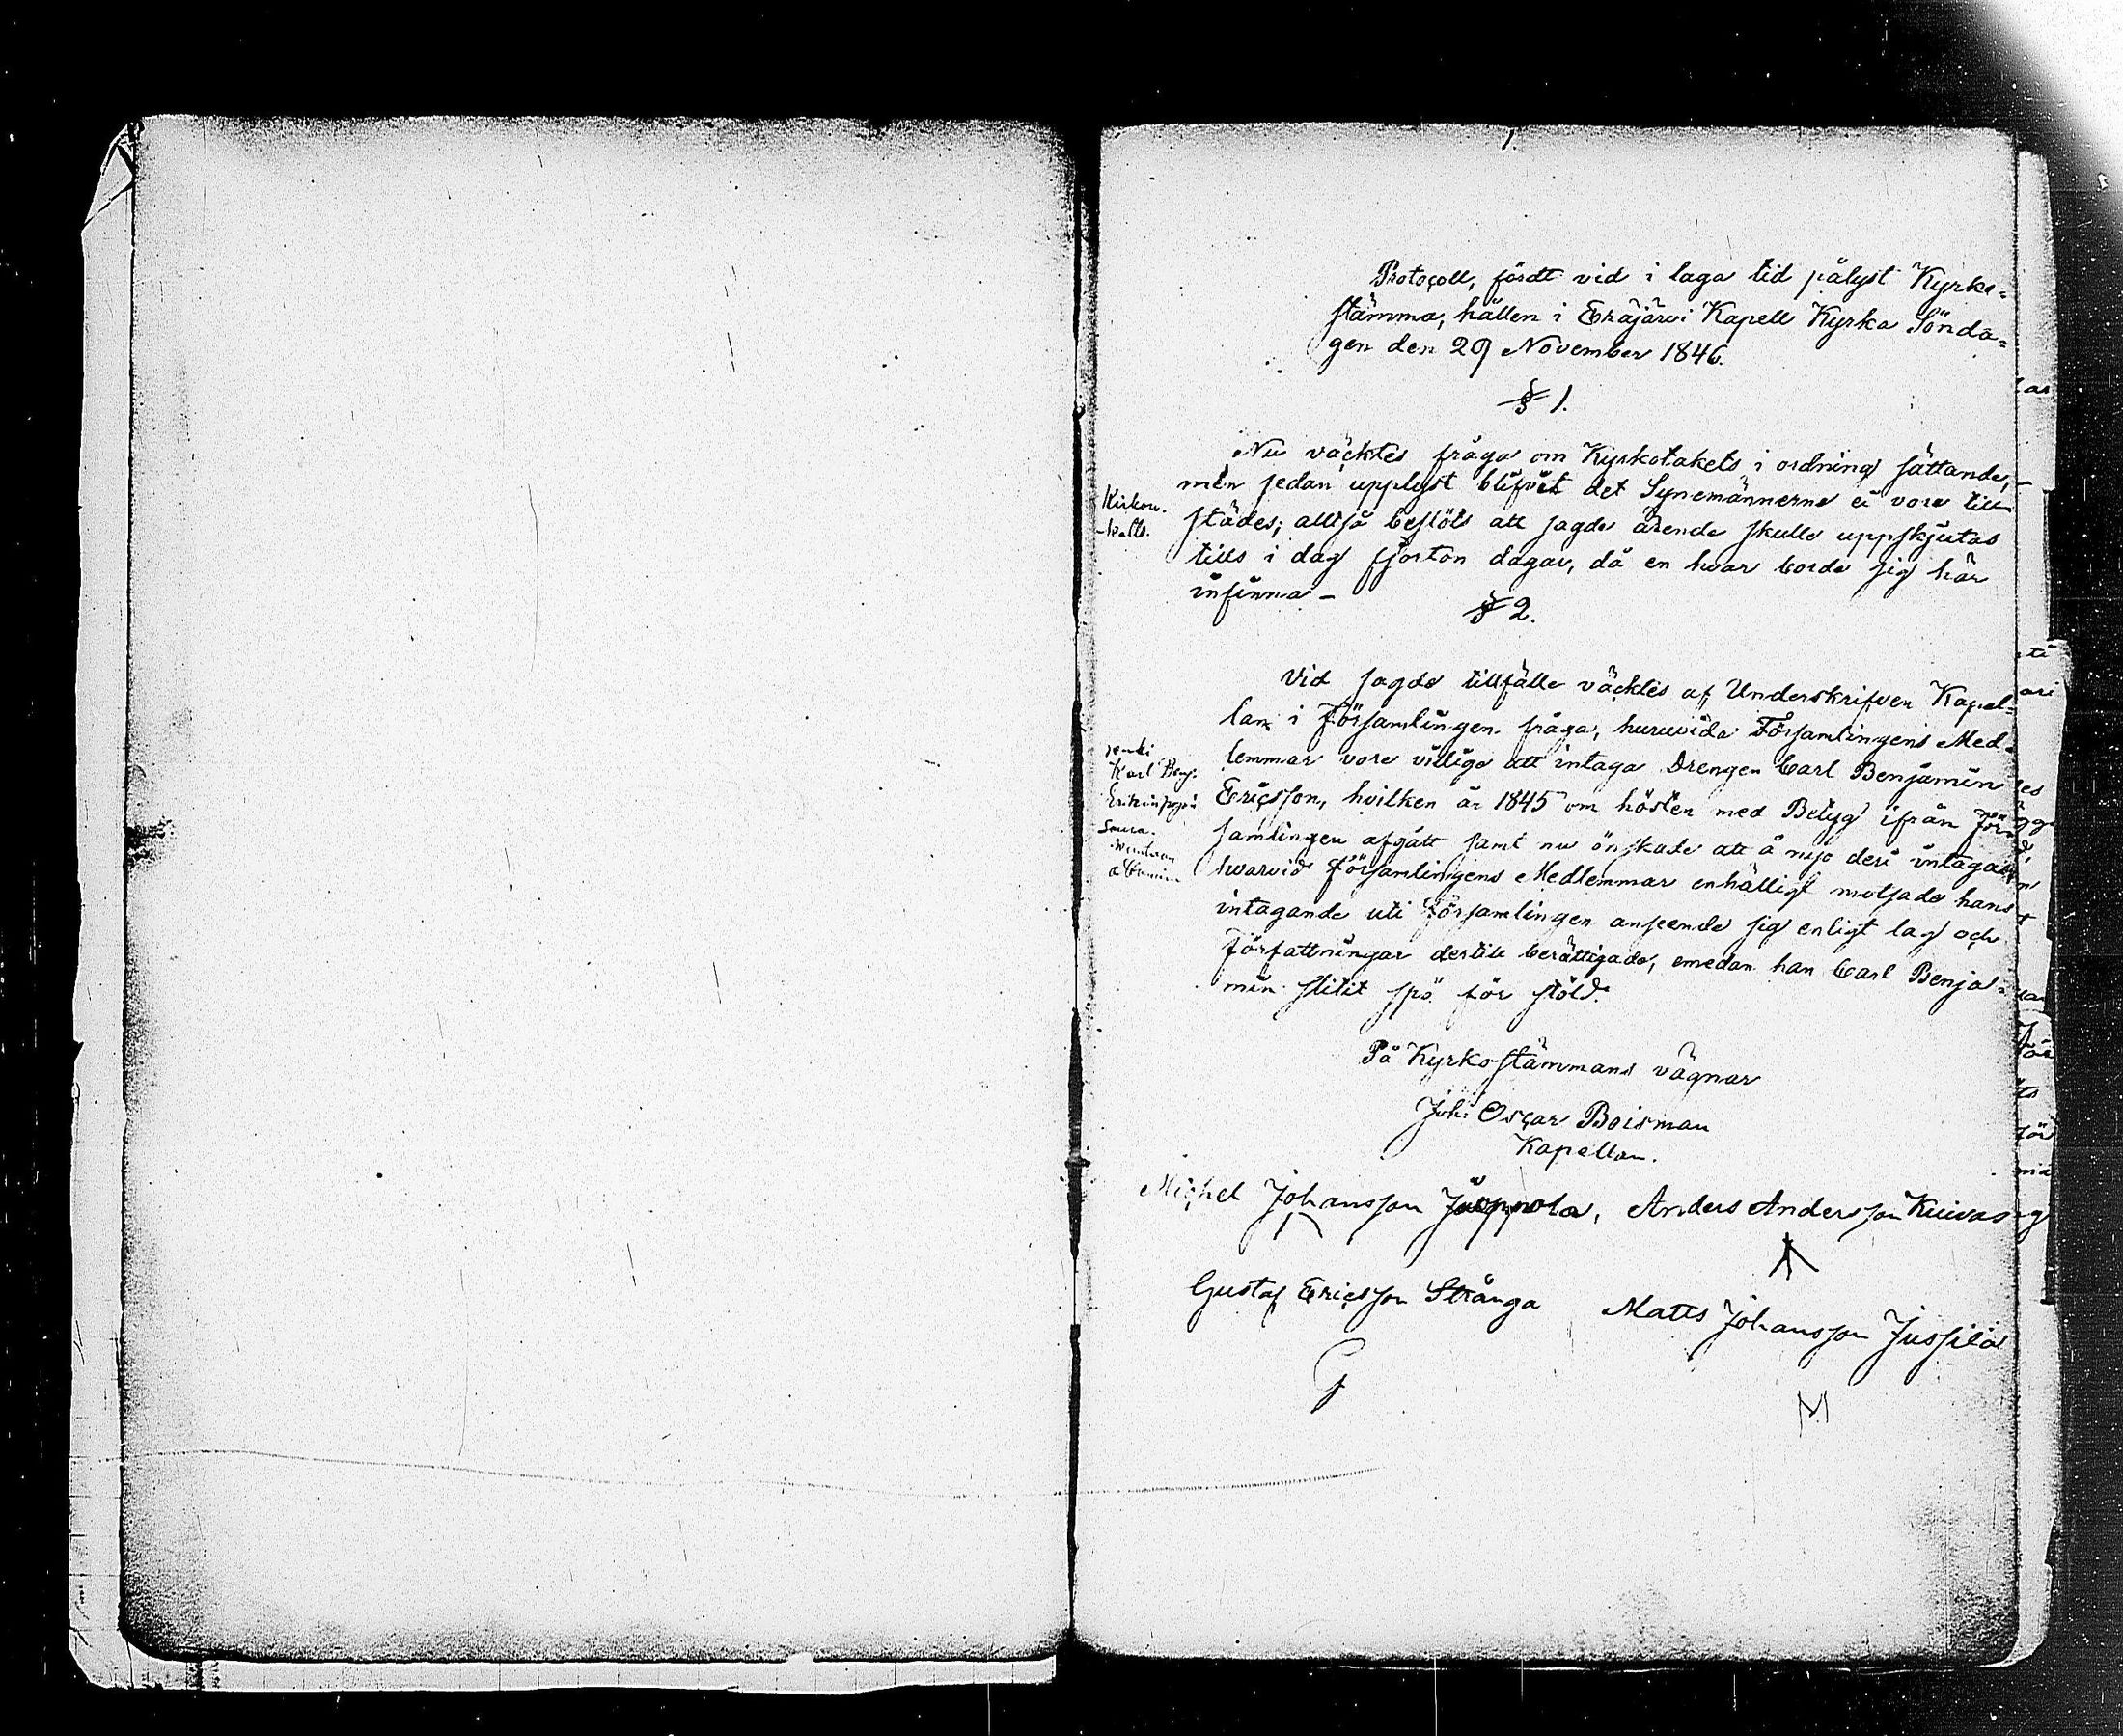 Protocoll, fördt vid i laga tid pålyst Kyrko=
stämma, hållen i Eräjärvi Kapell Kyrka Sönda=
gen den 29 November 1846.
§ 1.
Nu väcktes fråga om Kyrkotakets i ordning sättande,
men sedan upplyst blifvit det Synemännerne ei vore till
städes; alltså beslöts att sagde ärende skulle uppskjutas
tills i dag fjorton dagar, då en hvar borde sig här
infinna -
§ 2.
Vid sagde tillfälle väcktes af Underskrifven Kapel=
lan i Församlingen fråga, huruvida Församlingens Med=
lemmar vore villige att intaga Drengen Carl Benjamin
Ericsson, hvilken år 1845 om hösten med Betyg ifrån För=
samlingen afgått samt nu önskade att å nyo deri intagas
hvarvid Församlingens Medlemmar enhälligt motsade hans
intagande uti Församlingen anseende sig enligt lag och
Författningar dertill berättigade, emedan han Carl Benja=
min slitit spö för stöld.
På Kyrkostämmans vägnar
Joh: Oscar Boisman
Kapellan.
Michel Johansson Juoppola, Anders Andersson Kuivas
Gustaf Ericsson Stränga Matts Johansson Jussila
G
M
Karl Benj.